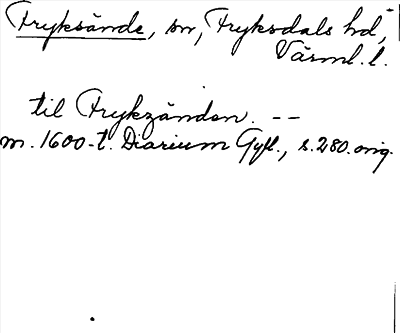 Fryksände, sn, Fryksdals hd,
Värml. l.
til Frykzänden. --
m. 1600-t. Diarium Gyll., s. 280. orig.